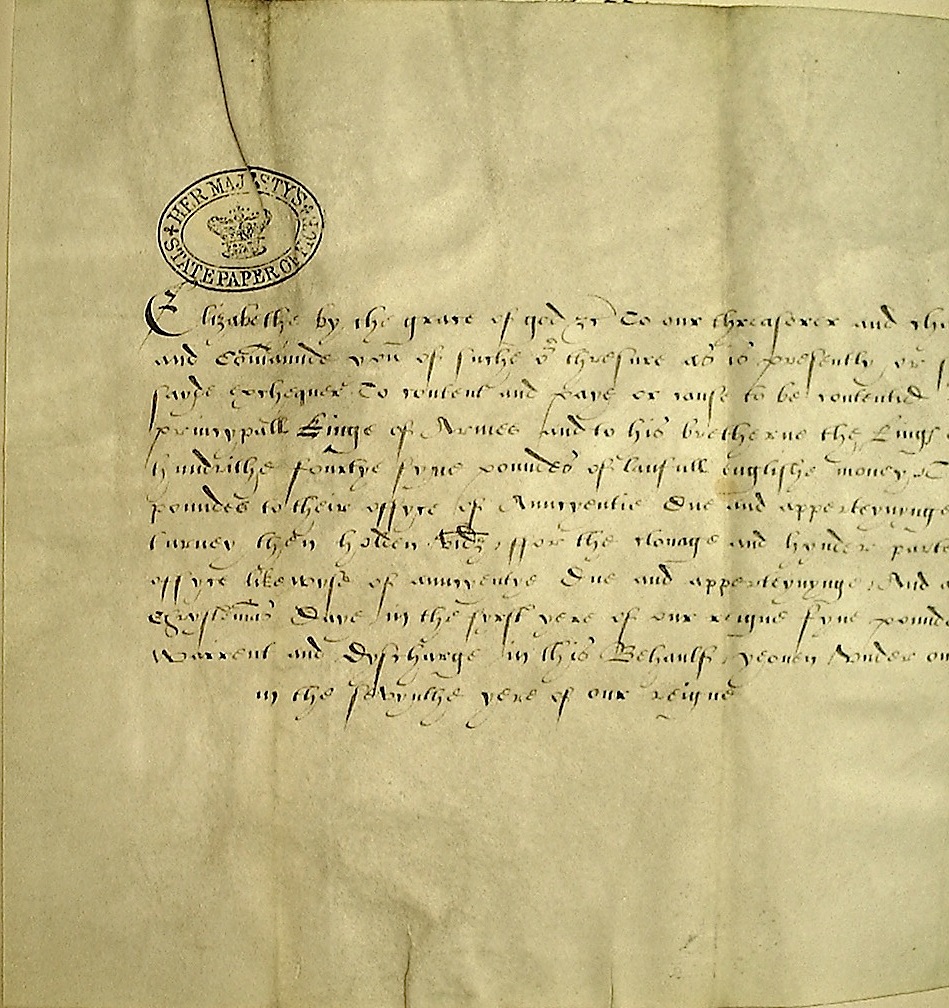 HER MAJESTY'S STATE PAPER OFFICE
Elizabethe by the grace of god &c To our threasorer and the
and Comaunde you of suche or thresure as is presently or
sayde exchequer To content and paye or cause to be contentid
pryncypall Kinge of Armes and to his bretherne the Kings
hundrithe fourtye fyve poundes of laufull englishe money
poundes to their offyce of Auncyentie due and apperteynynge
turney then holden vidz ffor the clonage and hynder parte
offyce likewyse of auncyentye due and apperteynynge And
Chrystemas Daye in the fyrst yere of our reigne fyve pounde
Warrent and dyscharge in this Behaulf yeoven Vnder
in the sevynthe yere of our reigne